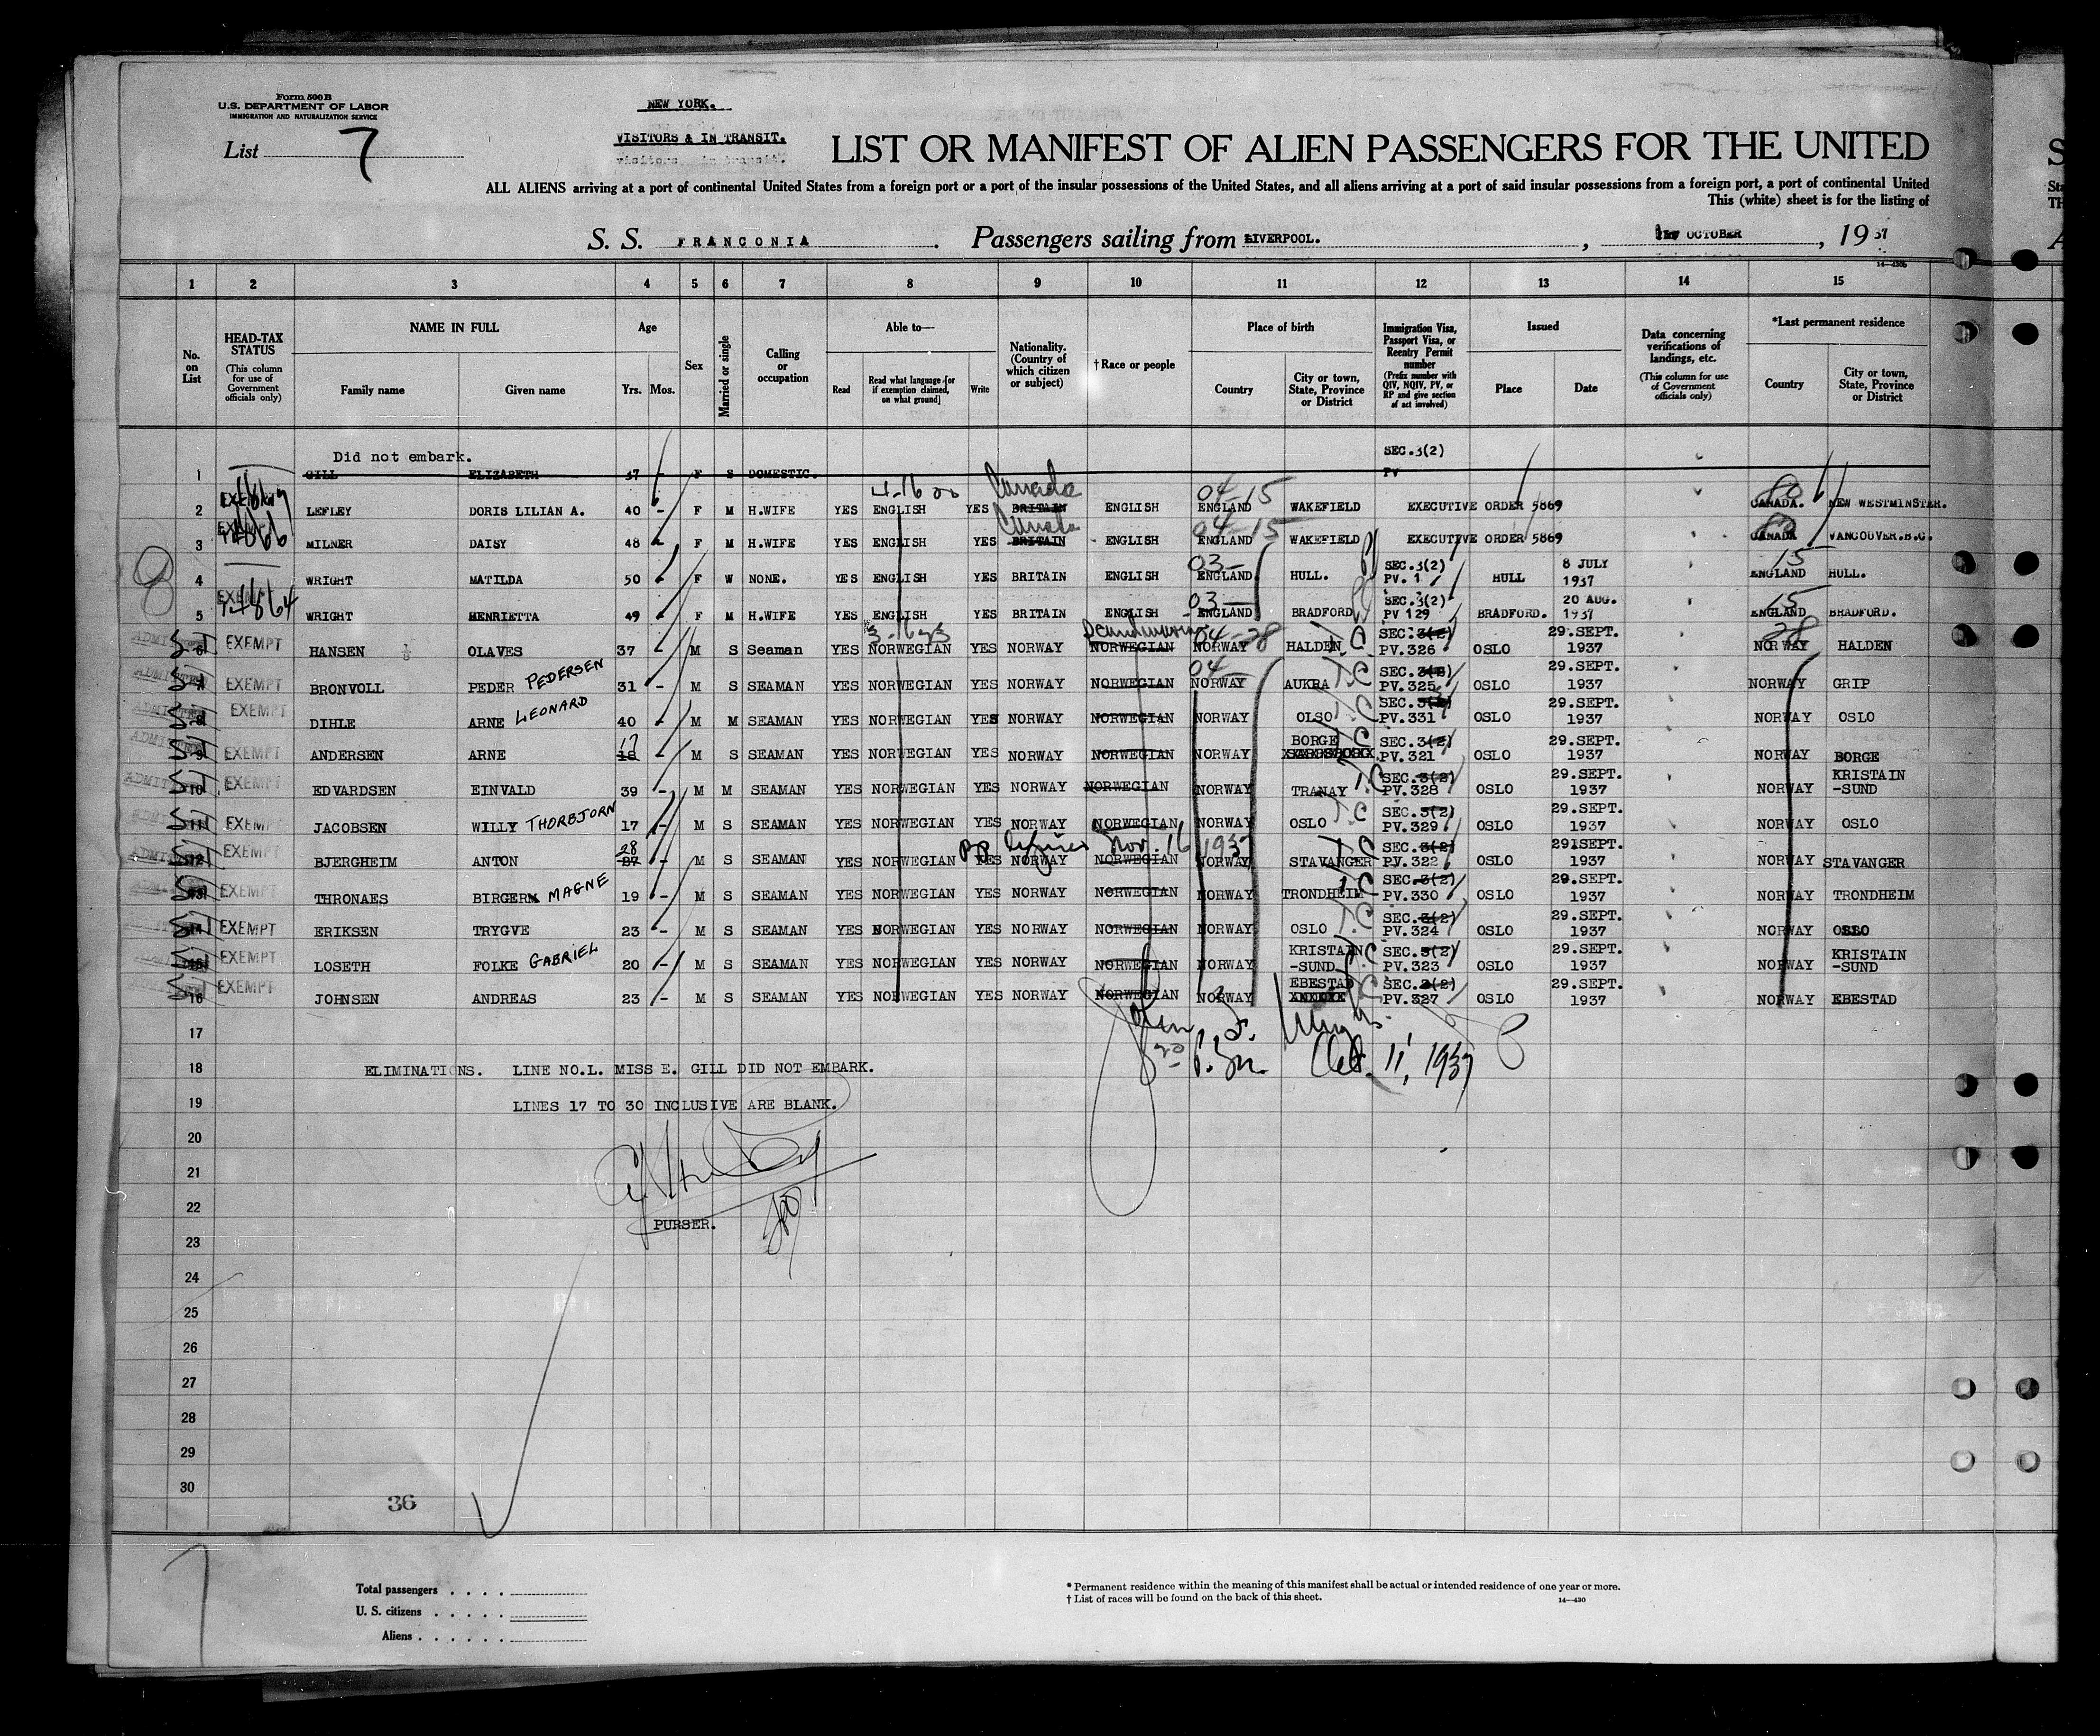 Form 500 B
U.S. DEPARTMENT OF LABOR
IMMIGRATION AND NATURALIZATION SERVICE
List 7
NEW YORK.
VISITORS & IN TRANSIT.
LIST OR MANIFEST OF ALIEN PASSENGERS FOR THE UNITED
ALL ALIENS arriving at a port of continental United States from a foreign port or a port of the insular possessions of the United States, and all aliens arriving at a port of said insular possessions from a foreign port, a port of continental United
This (white) sheet is for the listing of
S. S. FRANCONIA. Passengers sailing from LIVERPOOL. , OCTOBER , 1937
14-430b
1 2 3 4 5 6 7 8 9 10 11 12 13 14 15
No. on List
HEAD-TAX STATUS (This column for use of Government officials only)
NAME IN FULL Family name Given name
Age Yrs. Mos.
Sex
Married or single
Calling or occupation
Able to— Read Read what language [or if exemption claimed, on what ground] Write
Nationality. (Country of which citizen or subject)
†Race or people
Place of birth Country City or town, State, Province or District
Immigration Visa, Passport Visa, or Reentry Permit number (Prefix number with QIV, NQIV, PV, or RP and give section of act involved)
Issued Place Date
Data concerning verifications of landings, etc. (This column for use of Government officials only)
*Last permanent residence Country City or town, State, Province or District
Did not embark. SEC.3(2)
1 GILL ELIZABETH 37 - F S DOMESTIC. PV
4-16 Canada 04-15
2 EXEMPT LEFLEY DORIS LILIAN A. 40 - F M H.WIFE YES ENGLISH YES BRITAIN ENGLISH ENGLAND WAKEFIELD EXECUTIVE ORDER 5869 CANADA. NEW WESTMINSTER.
Canada 04-15
3 EXEMPT MILNER DAISY 48 - F M H.WIFE YES ENGLISH YES BRITAIN ENGLISH ENGLAND WAKEFIELD EXECUTIVE ORDER 5869 CANADA VANCOUVER.B.C.
03- SEC.3(2) 8 JULY 15
4 WRIGHT MATILDA 50 - F W NONE. YES ENGLISH YES BRITAIN ENGLISH ENGLAND HULL. PV. 1 HULL 1937 ENGLAND HULL.
03- SEC.3(2) 20 AUG. 15
5 EXEMPT WRIGHT HENRIETTA 49 - F M H.WIFE YES ENGLISH YES BRITAIN ENGLISH ENGLAND BRADFORD PV 129 BRADFORD. 1937 ENGLAND BRADFORD.
ADMITTED Scandinavian 04-28 T.C SEC.3(2) 29.SEPT. 28
6 EXEMPT HANSEN OLAVES 37 - M S Seaman YES NORWEGIAN YES NORWAY NORWEGIAN NORWAY HALDEN PV.326 OSLO 1937 NORWAY HALDEN
ADMITTED 04- T.C SEC.3(2) 29.SEPT.
7 EXEMPT BRONVOLL PEDER PEDERSEN 31 - M S SEAMAN YES NORWEGIAN YES NORWAY NORWEGIAN NORWAY AUKRA PV.325 OSLO 1937 NORWAY GRIP
ADMITTED T.C SEC.3(2) 29.SEPT.
8 EXEMPT DIHLE ARNE LEONARD 40 - M M SEAMAN YES NORWEGIAN YES NORWAY NORWEGIAN NORWAY OLSO PV.331 OSLO 1937 NORWAY OSLO
ADMITTED 17 BORGE T.C SEC.3(2) 29.SEPT.
9 EXEMPT ANDERSEN ARNE 18 - M S SEAMAN YES NORWEGIAN YES NORWAY NORWEGIAN NORWAY PV.321 OSLO 1937 NORWAY BORGE
ADMITTED T.C SEC.3(2) 29.SEPT. KRISTAIN
10 EXEMPT EDVARDSEN EINVALD 39 - M M SEAMAN YES NORWEGIAN YES NORWAY NORWEGIAN NORWAY TRANAY PV.328 OSLO 1937 NORWAY -SUND
ADMITTED T.C SEC.3(2) 29.SEPT.
11 EXEMPT JACOBSEN WILLY THORBJORN 17 - M S SEAMAN YES NORWEGIAN YES NORWAY NORWEGIAN NORWAY OSLO PV.329 OSLO 1937 NORWAY OSLO
28 pp expires Nov. 16 1937 T.C SEC.3(2) 291SEPT.
12 EXEMPT BJERGHEIM ANTON 27 - M S SEAMAN YES NORWEGIAN YES NORWAY NORWEGIAN NORWAY STAVANGER PV.322 OSLO 1937 NORWAY STAVANGER
T.C SEC.3(2) 29.SEPT.
13 EXEMPT THRONAES BIRGER MAGNE 19 - M S SEAMAN YES NORWEGIAN YES NORWAY NORWEGIAN NORWAY TRONDHEIM PV.330 OSLO 1937 NORWAY TRONDHEIM
T.C SEC.3(2) 29.SEPT.
14 EXEMPT ERIKSEN TRYGVE 23 - M S SEAMAN YES NORWEGIAN YES NORWAY NORWEGIAN NORWAY OSLO PV.324 OSLO 1937 NORWAY OSLO
KRISTAIN T.C SEC.3(2) 29.SEPT. KRISTAIN
15 EXEMPT LOSETH FOLKE GABRIEL 20 - M S SEAMAN YES NORWEGIAN YES NORWAY NORWEGIAN NORWAY -SUND PV.323 OSLO 1937 NORWAY -SUND
EBESTAD T.C SEC.3(2) 29.SEPT.
16 EXEMPT JOHNSEN ANDREAS 23 - M S SEAMAN YES NORWEGIAN YES NORWAY NORWEGIAN NORWAY PV.327 OSLO 1937 NORWAY EBESTAD
17
Oct. 11, 1937
18 ELIMINATIONS. LINE NO.L. MISS E. GILL DID NOT EMBARK.
19 LINES 17 TO 30 INCLUSIVE ARE BLANK.
20
21
22
PURSER.
23
24
25
26
27
28
29
30
36
Total passengers
U. S. citizens
Aliens
* Permanent residence within the meaning of this manifest shall be actual or intended residence of one year or more.
† List of races will be found on the back of this sheet.
14-430